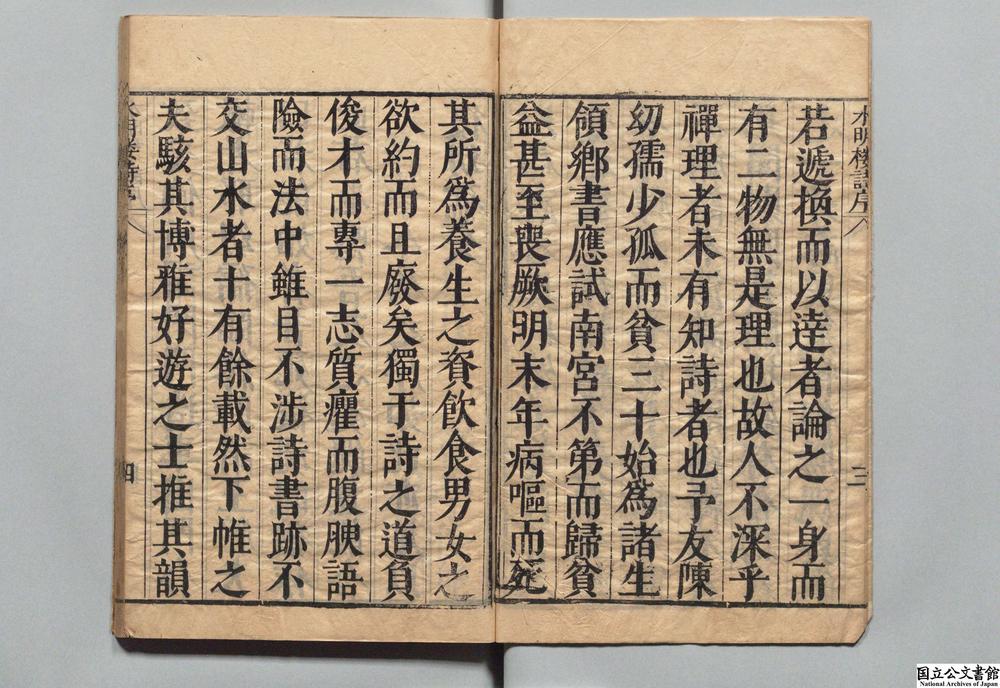 水明楼詩序
三
若遞換而以達者論之一身而
有二物無是理也故人不深乎
禪理者未有知詩者也予友陳
幼孺少孤而貧三十始爲諸生
領鄉書應試南宮不第而歸貧
益甚至喪厥明末年病嘔而死
其所爲養生之資飲食男女之
欲約而且廢矣獨于詩之道負
俊才而專一志質癯而腹腴語
險而法中雖目不涉詩書跡不
交山水者十有餘載然下帷之
夫駭其博雅好遊之士推其韻
水明楼詩序
四
国立公文書館
National Archives of Japan